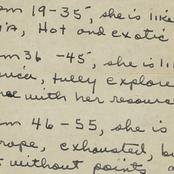 om 19-35, she is like
ia, Hot and exotic
om 36 -45, she is li
rica, fully explore
ree with her resour
om 46-55, she is
rope, exhausted, bu
t without points